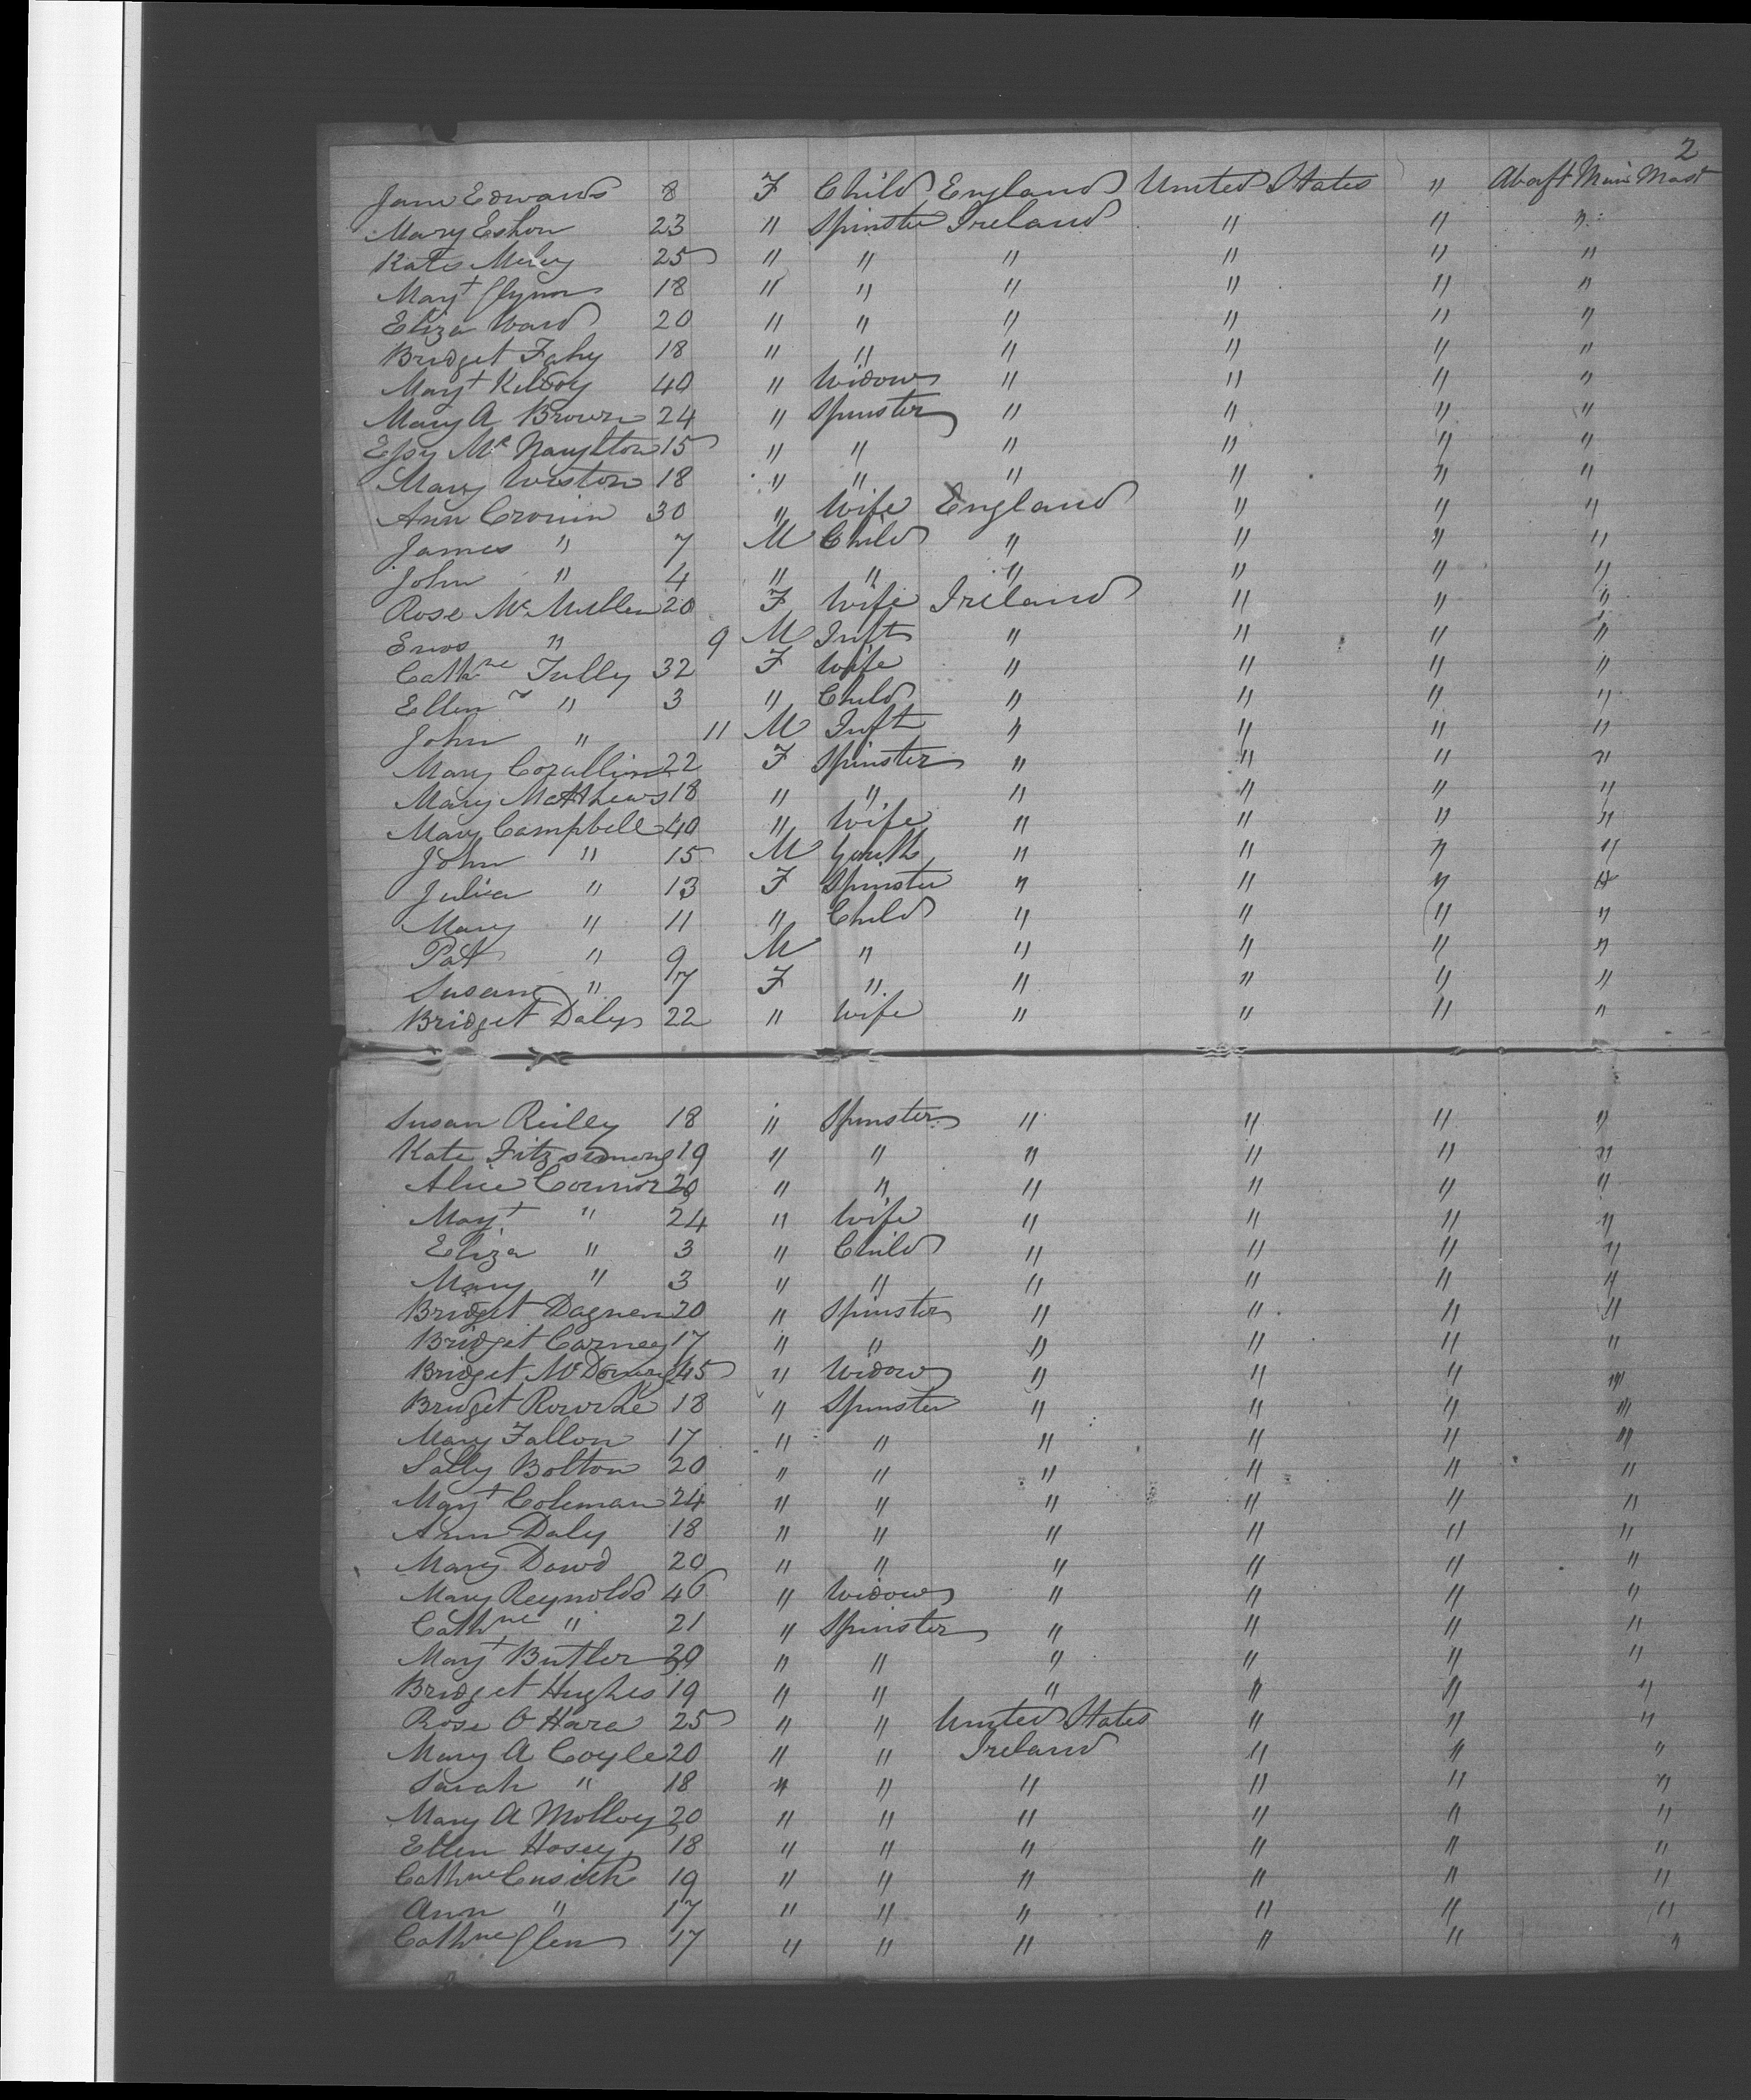 2
Jane Edwards 8 F Child England United States " Abaft Main Mast
Mary Eshon 23 " Spinster Ireland " " "
Kate Meley 25 " " " " " "
Margt Glynn 18 " " " " " "
Eliza Ward 20 " " " " " "
Bridget Fahy 18 " " " " " "
Margt Kilroy 40 " Widow " " " "
Mary A Brown 24 " Spinster " " " "
Mc Naughton 15 " " " " " "
Mary Weston 18 " " " " " "
Ann Cronin 30 " Wife England " " "
James " 7 M Child " " " "
John " 4 " " " " " "
Rose McMullen 20 F Wife Ireland " " "
Enos " 9 M Inft " " " "
Cathne Tully 32 F Wife " " " "
Ellen " 3 " Child " " " "
John " 11 M Inft " " " "
Mary Corallin 22 F Spinster " " " "
Mary Matthews 18 " " " " " "
Mary Campbell 40 " Wife " " " "
John " 15 M Youth " " " "
Julia " 13 F Spinster " " " "
Mary " 11 " Child " " " "
Pat " 9 M " " " " "
Susan " 7 F " " " " "
Bridget Daly 22 " Wife " " " "
Susan Reilly 18 " Spinster " " " "
Kate Fitzsimons 19 " " " " " "
Alice Connor 20 " " " " " "
Margt " 24 " Wife " " " "
Eliza " 3 " Child " " " "
Mary " 3 " " " " " "
Bridget Dagnen 20 " Spinster " " " "
Bridget Carney 17 " " " " " "
Bridget 45 " Widow " " " "
Bridget Rourke 18 " Spinster " " " "
Mary Fallon 17 " " " " " "
Sally Bolton 20 " " " " " "
Margt Coleman 24 " " " " " "
Ann Daly 18 " " " " " "
Mary Dowd 20 " " " " " "
Mary Reynolds 46 " Widow " " " "
Cathne " 21 " Spinster " " " "
Margt Butler 20 " " " " " "
Bridget Hughes 19 " " " " " "
Rose O Hara 25 " " United States " " "
Mary A Coyle 20 " " Ireland " " "
Sarah " 18 " " " " " "
Mary A Molloy 20 " " " " " "
Ellen Hosey 18 " " " " " "
Cathne Cusick 19 " " " " " "
Ann " 17 " " " " " "
Cathne Glen 17 " " " " " "